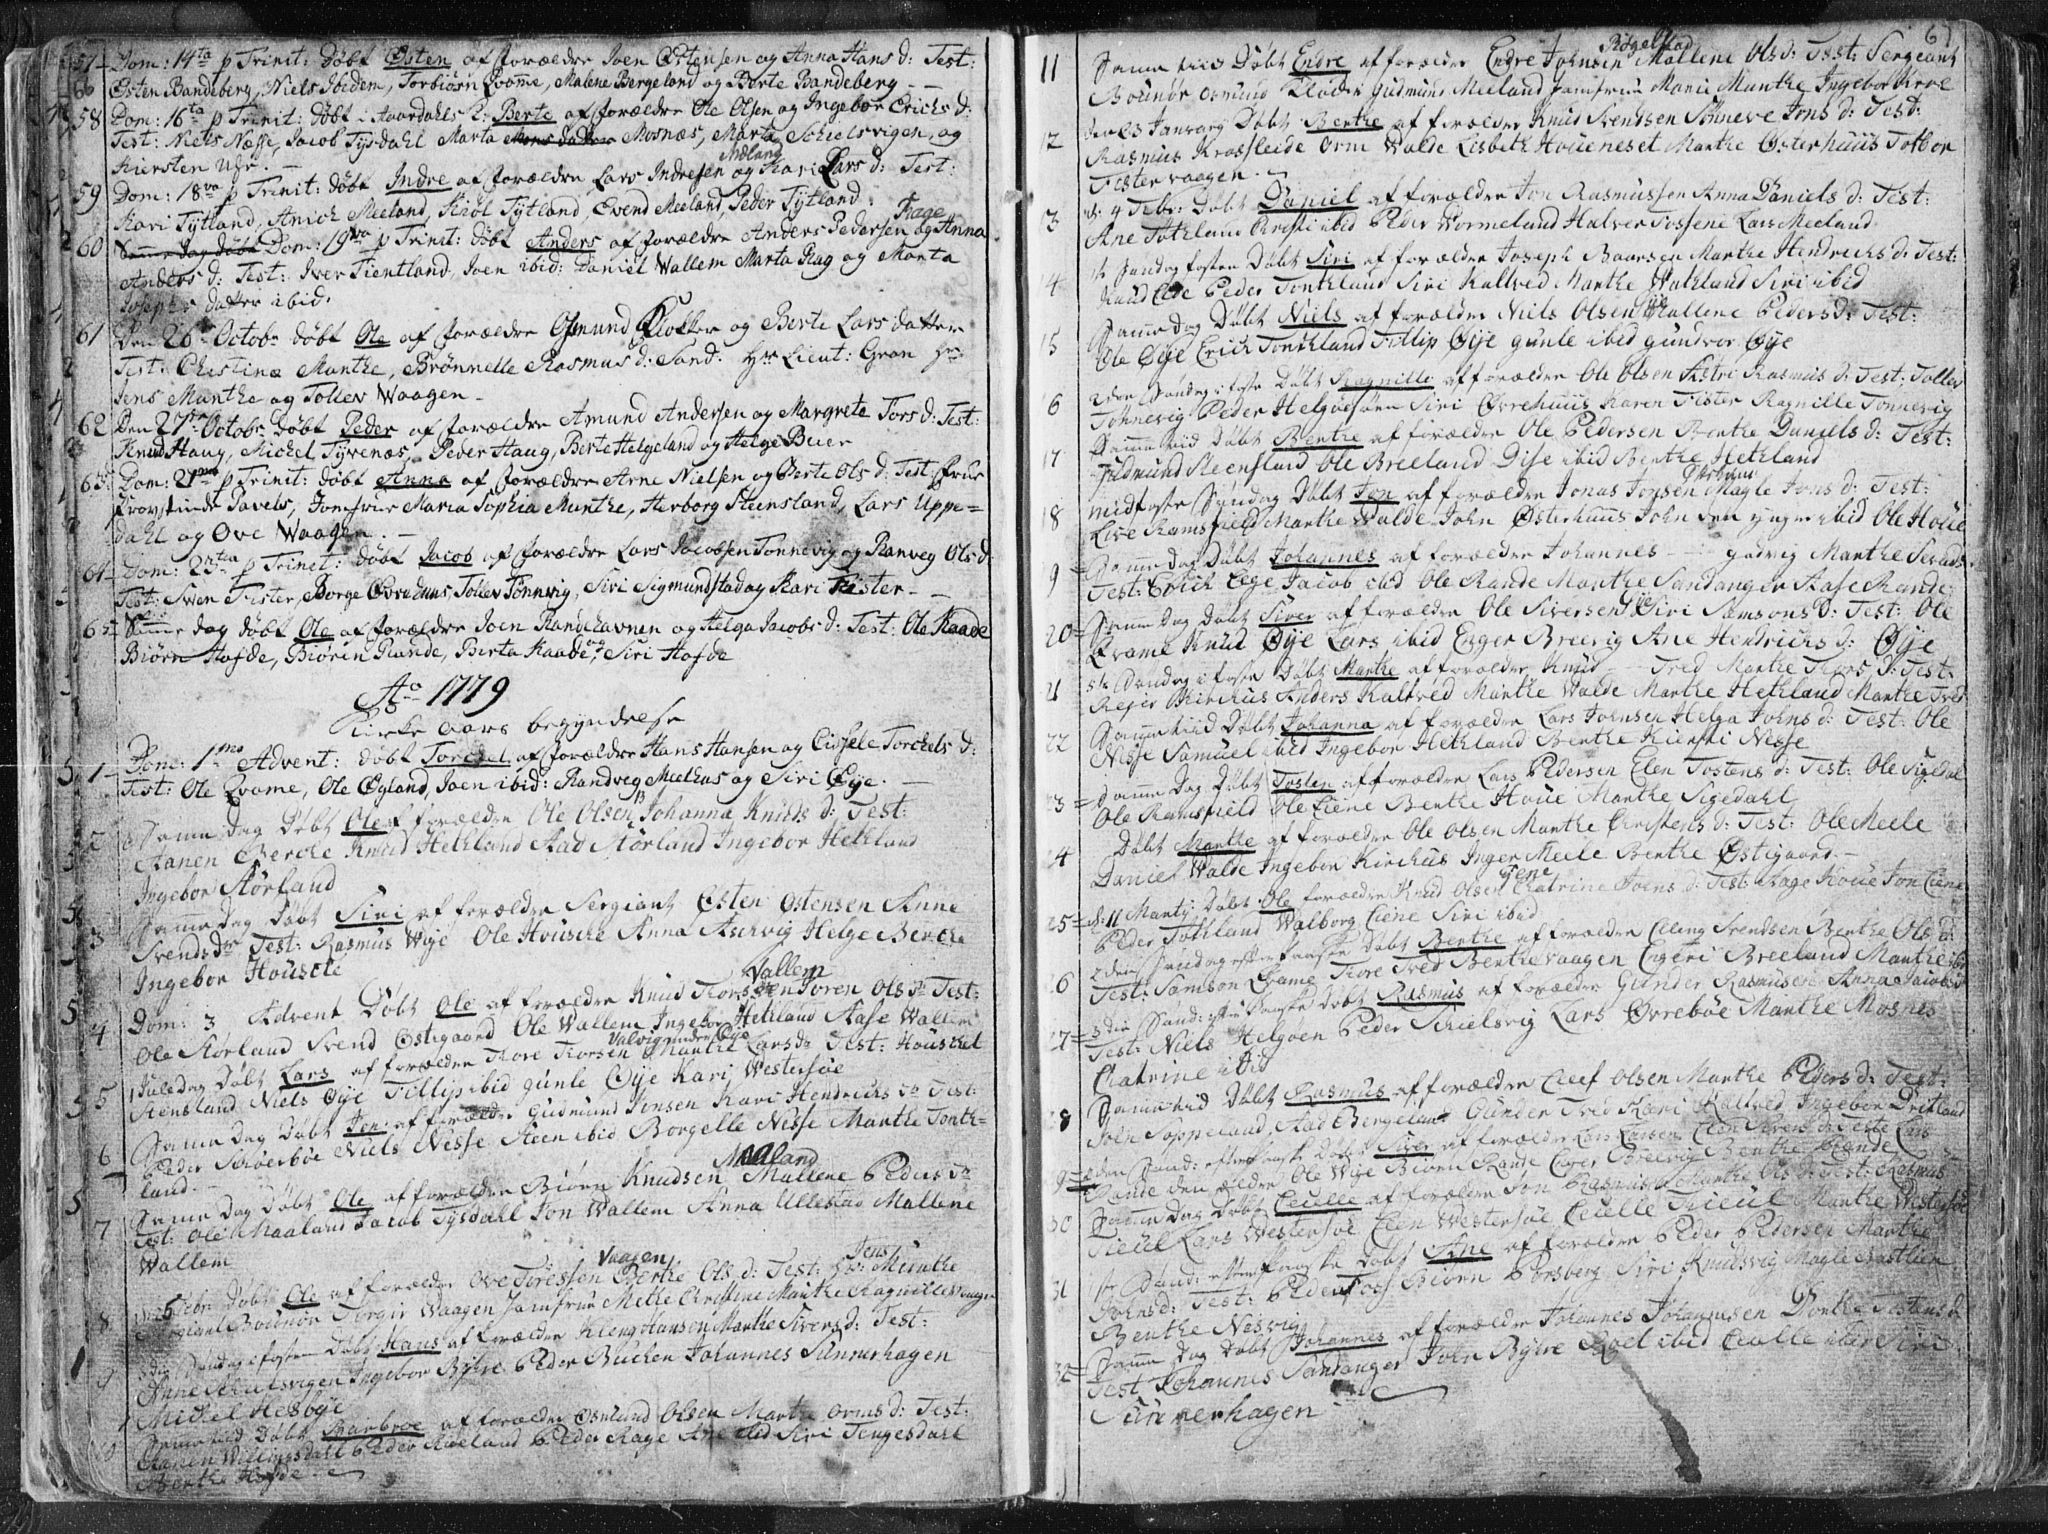 57 Dom: 14ta p Trinit: döbt Østen af forældre Joen Østensen og Anna Hans d: Test:
Østen Bandeberg, Niels ibidem, Torbiörn Qvame, Malene Bergeland og Berte Bandeberg
58 Dom: 16ta p Trinit: döbt i Aardahls K: Berte af forældre Ole Olsen og Ingebor Erichs d:
Test: Niels Næsse, Jacob Tÿsdahl Marta Mosnæs, Marta Schielsvigen, og
Kiersten
Nædland
59 Dom: 18va p Trinit: döbt Indre af forældre Lars Indresen og Kari Lars d: Test:
Kari Tÿtland, Anich Meeland, Kiöl Tÿtland, Evend Meeland, Peder Tÿtland
Rage
60 Samme dag döbt Dom: 19va p Trinit: döbt Anders af forældre Anders Pedersen og Anna
Anders d: Test: Iver Tientland, Joen ibid: Daniel Wallem Marta Rag og Marta
Josephs datter ibid:
61 Den 26 Octobr döbt Ole af forældre Osmund Klokker og Berte Lars datter
Test: Christina Munthe, Brönnelle Rasmus d: Sand: Hr Lieut: Gron Hr
Jens Munthe og Tollev Waagen
62 Den 27 Octobr döbt Peder af forældre Amund Andersen og Margrete Tors d: Test:
Knud Haug, Michel Tÿvenæs, Peder Haug, Berte Helgeland og Helge Beier
63 Dom: 21 p Trinit: döbt Anna af forældre Arne Nielsen og Berte Ols d: Test: frue
Provstinde Pavels, Jomfrue Maria Sophia Munthe, Herborg Steensland, Lars Uppe=
dahl og Ove Waagen
64 Dom: 23 p Trinit: döbt Jacob af forældre Lars Jacobsen Tonnevig og Ranveg Ols d
Test: Swen Fister, Borge Øvrehuus, Tollev Tönnevig, Siri Sigmundstad og Kari Fister
65 Samme dag döbt Ole af forældre Joen Randehavnen og Helga Jacobs d: Test: Ole Kaade
Biörn Hofde, Biören Rande, Berta Kaade, og Siri Hofde
Ao 1779
Kirke aars begÿndelse
1 Dom: 1mo Advent: döbt Torchel af forældre Hans Hansen og Lidsele Torchels d:
Test: Ole Qvame, Ole Øgland, Joen ibid: Randveg Meelhus og Siri Øÿe
2 Samme dag Döbt Ole af forældre Ole Olsen Johanna Knuds d: Test:
Aanen Berche Knud Hetland Aad Störland Ingebor Hetland
Ingebor Störland
3 Samme dag Döbt Siri af forældre Sergiant Østen Ostensen Anne
Svends dr Test: Rasmus Wÿe Ole Houscke Anna Aschvig Helge Berche
Ingebor Houscke
Vallem
4 Dom: 3 Advent Döbt Ole af forældre Knud Torsen Soren Ols dr Test:
Ole Störland Svend Østigaard Ole Wallem Ingebor Hetland Aase Wallem
Valvig under Øÿe
5 1 Juledag Döbt Lars af forældre Tore Thorsen Marthe Lars dr Test: Houschel
Stensland Niels Øÿe Fillip ibid gunle Øÿe Kari Westersöe
6 Samme Dag Döbt Jon af forældre Gudmund Jonsen Kari Hendrichs dr Test:
Peder Schöerböe Niels Nesse Steen ibid Borgelle Nesse Marthe Tonth=
land
Maaland
7 Samme Dag Döbt Ole af forældre Biörn Knudsen Mallene Peders dr
Test: Ole Maaland Jacob Tÿsdahl Jon Wallem Anna Ullestad Mallene
Wallem
Vaagen
Jens
8 Febr: Döbt Ole af forældre Ove Toressen Berthe Ols d: Test: Hr: Munthe
Sergiant Boudnor Torgir Waagen Jomfrue Mette Christine Munthe Ragnille Vaagen
9 Söndag i fasten Döbt Hans af forældre Kleng Hansen Marthe Sivers d: Test:
Anne Schielsvigen Ingebor Bÿhre Peder Buchen Johannes Sunnerhagen
Michel Hesbÿe
10 Samme tiid Döbt Barbroe af forældre Osmund Olsen Marthe Orms d: Test:
Aanen Willigsdahl Peder Röeland Peder Rage Ane ibid Siri Tengesdahl
Berthe Hofde
67
Rögelstad
11 Samme tiid Döbt Endre af forældre Endre Johnsen Mallene Ols d: Test: Sergeant
Boundr Osmund Kloder Gudmund Meeland Jomfrue Marie Munthe Ingebor
12 den 23 January Döbt Berthe af forældre Knud Svendsen Sönneve Jons d: Test:
Rasmus Krossleide Orm Walde Lisbeth Houeneset Marthe Østerhuus Tolbor
Fistervaagen
13 d: 4 Febr: Döbt Daniel af forældre Jon Rasmussen Anna Daniels d: Test:
Ane Totland Kristi ibid Peder Wormeland Halvor Fossene Lars Meeland
14 1te Söndag fasten Döbt Siri af forældre Joseph Baarsen Marthe Hendrichs d: Test:
Knud Ege Peder Tonthland Siri Kaltved Marthe Watland Siri ibid
15 Samme dag Döbt Niels af forældre Niels Olsen Mallene Peders d: Test:
Ole Øÿe Erich Tonthland Fillip Øÿe gunle ibid gundvor Øÿe
16 2den Söndag i faste Döbt Ragnille af forældre Ole Olsen Sidtri Rasmus d: Test: Tollev
Tonnevig Peder Helgöesöen Siri Øvrehuus Karen Fister Ragnille Tonnevig
17 Samme tiid Döbt Berthe af forældre Ole Pedersen Berthe Daniels d: Test:
Gudmund Steensland Ole Breeland Dise ibid Berthe Hetland
18 midfaste Söndag Döbt Jon af forældre Jonas Jonsen Magle Jons d: Test:
Live Ramsfield Marthe Walde John Østerhuus John den yngre ibid Ole Houe
19 Samme dag Döbt Johannes af forældre Johannes gadvig Marthe Svends
Test: Erich Ege Jacob ibid Ole Rande Marthe Sandanger Aase Rande
20 Samme Dag Döbt Siver af forældre Ole Siversen Siri Samsons d: Test: Ole
Qvame Knud Øÿe Lars ibid Enger Breevig Ane Hendrichs d: Øÿe
21 5te Söndag i faste Döbt Marthe af forældre Knud Tved Marthe Thors d: Test:
Reier Kirchhus Anders Kaltvéd Marthe Walde Marthe Hetland Marthe Tved
22 Samme tiid Döbt Johanna af forældre Lars Johnsen Helga Johns d: Test: Ole
Nesse Samuel ibid Ingebor Hetland Berthe Kiersti Nesse
23 Samme Dag Döbt Tosten af forældre Lars Pedersen Elen Tostens d: Test: Ole Sigedal
Ole Ramsfield Ole Liene Berthe Houe Marthe Sigedahl
24 Döbt Marthe af forældre Ole Olsen Marthe Christens d: Test: Ole Meele
Daniel Walde Ingebor Kirchus Inger Meele Berthe Østigaard
Liene
25 d: 11 Martÿ Döbt Ole forældre Knud Olsen Chatrine Johns d: Test: Aage Houe Jon Liene
Peder Totland Walborg Liene Siri ibid
26 2den Söndag efter Paaske Döbt Berthe af forældre Cleng Svendsen Berthe Ols d:
Test: Samson Qvame Tore Tved Berthe Vaagen Engeri Breeland Marthe ibid
27 3die Sönd: eftr Paaske Döbt Rasmus af forældre Gunder Rasmusen Anna Jacobs d
Test: Niels Helgöen Peder Schielsvig Lars Øvreböe Marthe Mosnes
Chatrine ibid
28 Samme tiid Döbt Rasmus af forældre Eleef Olsen Marthe Peders d: Test:
John Soppeland, Aad Bergeland Gunder Tved Kari Kaltved Ingebor Tveitland
29 den Sönd: efter Paaske Döbt Siver af forældre Lars Larsen Elen Sivers d: Test: Lars
Rande den ældre Ole Wÿe Biörn Rande Enger Breevig Berthe Rande
30 Samme Dag Döbt Cecille af forældre Jon Rasmus Marthe Ols d: Test: Rasmus
Tieül Lars Westersöe Elen Westersöe Cecille Tieül Marthe Westersöe
31 1te Sönd: efter Paaske Döbt Ane af forældre Peder Pedersen Marthe
Johns d: Test: Peder Foss Biörn Porsberg Siri Knudsvig Magle Nastlien
Berthe Nesvig
32 Samme Dag Döbt Johannes af forældre Johannes Johannesen Dorthe Tostens d
Test Johannes Sandanger John Bÿre Roel ibid Cecille ibid Siri
Sunnerhagen